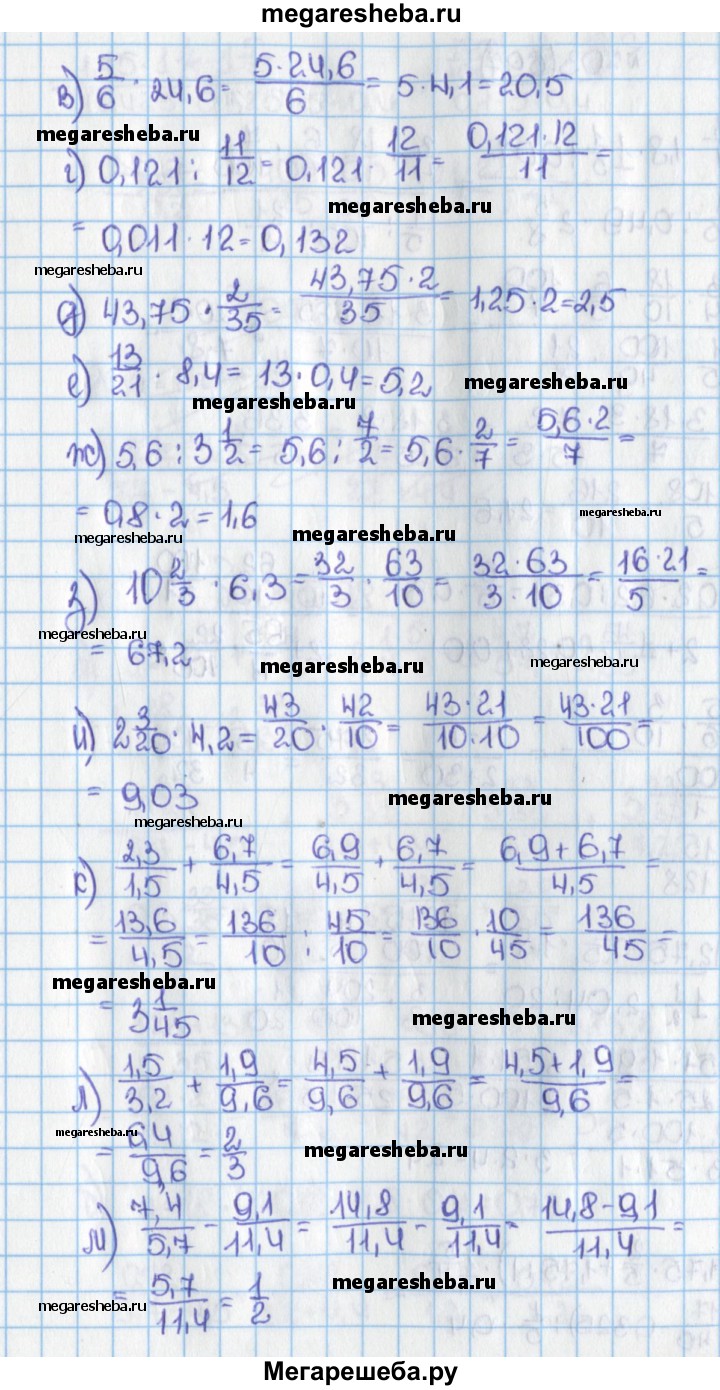 megaresheba.ru
в) 5/6 · 24,6 = 5·24,6/6 = 5·4,1 = 20,5
megaresheba.ru
г) 0,121 : 11/12 = 0,121 · 12/11 = 0,121·12/11 =
megaresheba.ru
= 0,011 · 12 = 0,132
megaresheba.ru
д) 43,75 · 2/35 = 43,75·2/35 = 1,25·2 = 2,5
е) 13/21 · 8,4 = 13·0,4 = 5,2
megaresheba.ru
megaresheba.ru
ж) 5,6 : 3 1/2 = 5,6 : 7/2 = 5,6 · 2/7 = 5,6·2/7 =
= 0,8 · 2 = 1,6
megaresheba.ru
megaresheba.ru
megaresheba.ru
з) 10 2/3 · 6,3 = 32/3 · 63/10 = 32·63/3·10 = 16·21/5 =
megaresheba.ru
= 67,2
megaresheba.ru
megaresheba.ru
и) 2 3/20 · 4,2 = 43/20 · 42/10 = 43·21/10·10 = 43·21/100 =
= 9,03
megaresheba.ru
megaresheba.ru
к) 2,3/1,5 + 6,7/4,5 = 6,9/4,5 + 6,7/4,5 = 6,9+6,7/4,5 =
= 13,6/4,5 = 136/10 : 45/10 = 136/10 · 10/45 = 136/45 =
megaresheba.ru
= 3 1/45
megaresheba.ru
л) 1,5/3,2 + 1,9/9,6 = 4,5/9,6 + 1,9/9,6 = 4,5+1,9/9,6 =
megaresheba.ru
= 6,4/9,6 = 2/3
megaresheba.ru
м) 7,4/5,7 - 9,1/11,4 = 14,8/11,4 - 9,1/11,4 = 14,8-9,1/11,4 =
megaresheba.ru
= 5,7/11,4 = 1/2
megaresheba.ru
Мегарешеба.ру